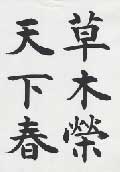 草木榮
天下春